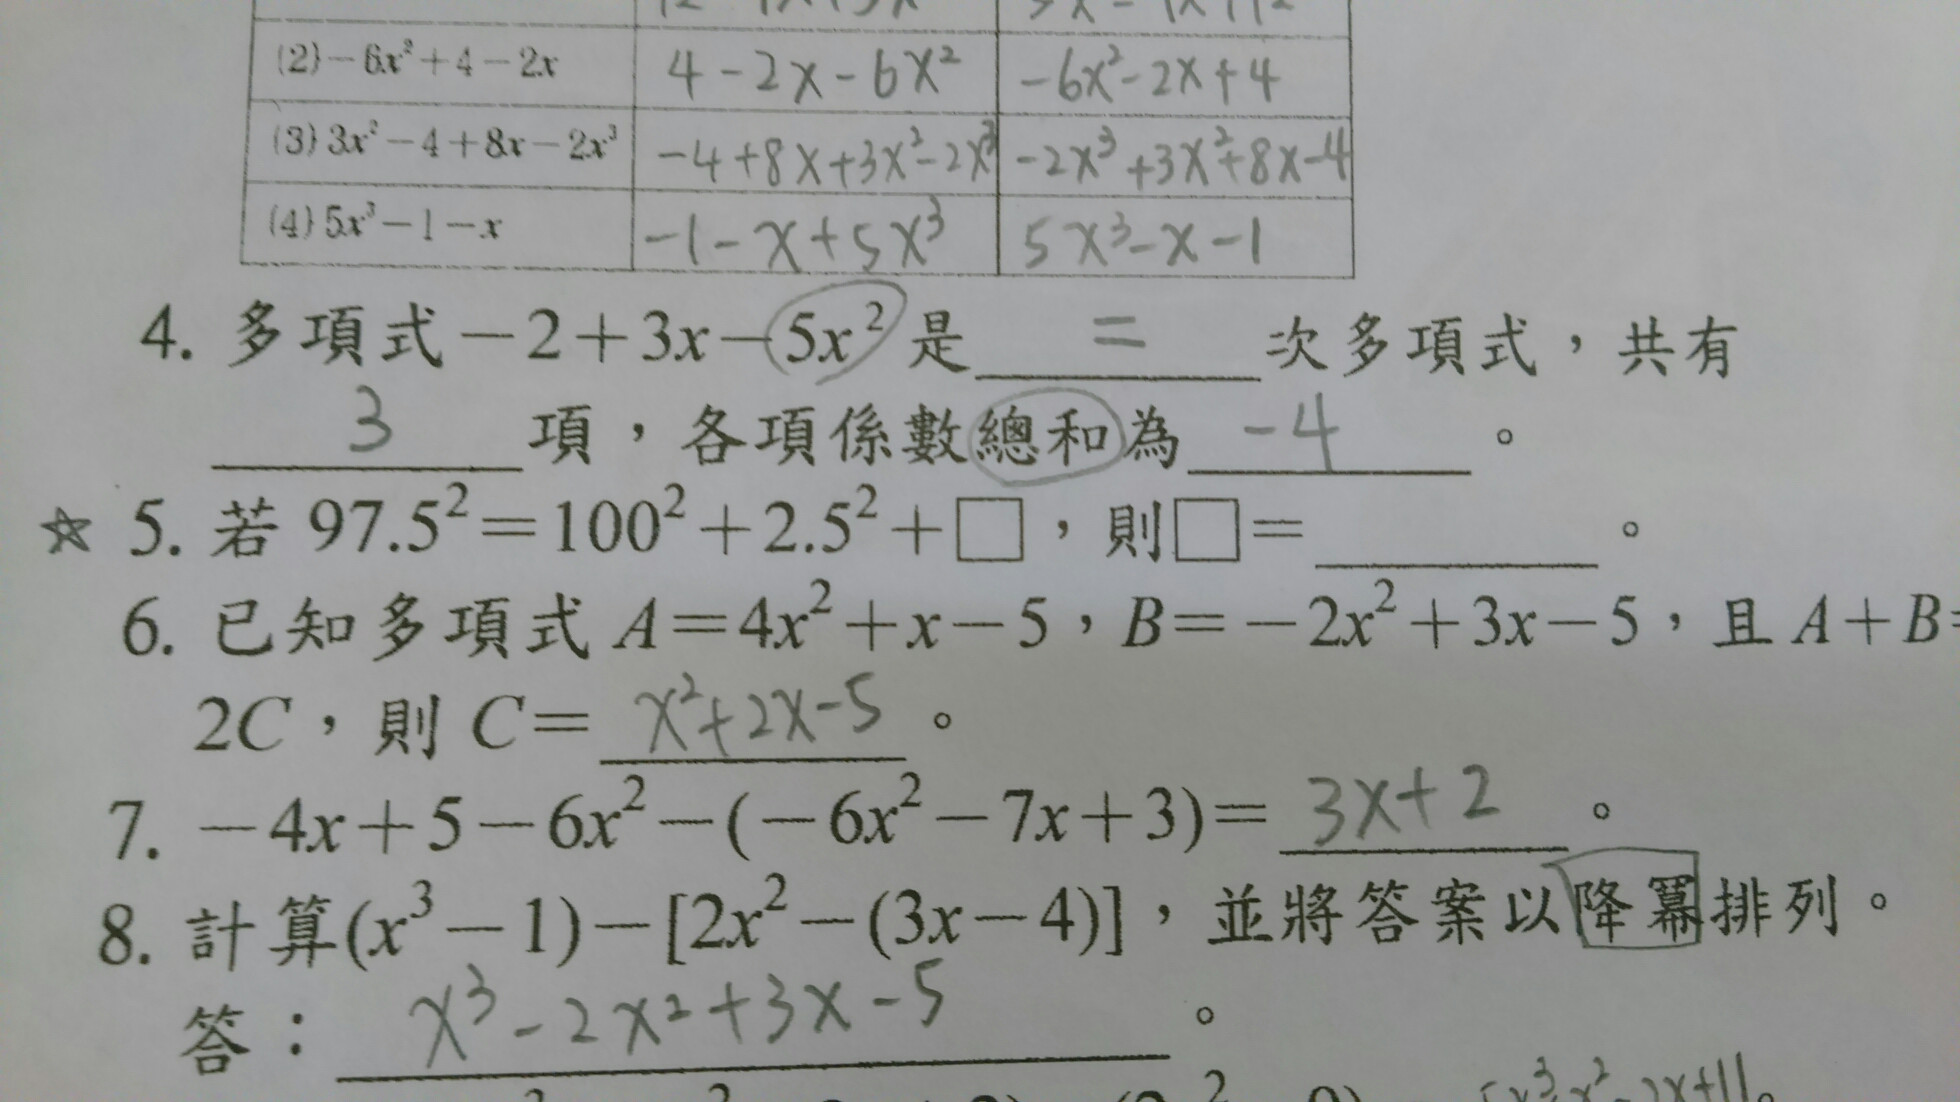 (2)－6x²＋4－2x 4－2x－6x² －6x²－2x＋4
(3) 3x²－4＋8x－2x³ －4＋8x＋3x²－2x³ －2x³＋3x²＋8x－4
(4) 5x³－1－x －1－x＋5x³ 5x³－x－1
4. 多項式－2＋3x－5x² 是 二 次多項式，共有
3 項，各項係數總和為 －4 。
☆ 5. 若 97.5²＝100²＋2.5²＋□，則□＝ 。
6. 已知多項式 A＝4x²＋x－5，B＝－2x²＋3x－5，且 A＋B＝
2C，則 C＝ x²＋2x－5 。
7. －4x＋5－6x²－(－6x²－7x＋3)＝ 3x＋2 。
8. 計算(x³－1)－[2x²－(3x－4)]，並將答案以降冪排列。
答： x³－2x²＋3x－5 。